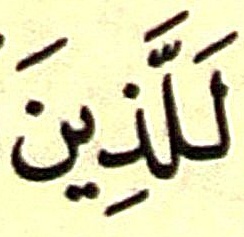 لَلَّذِينَ